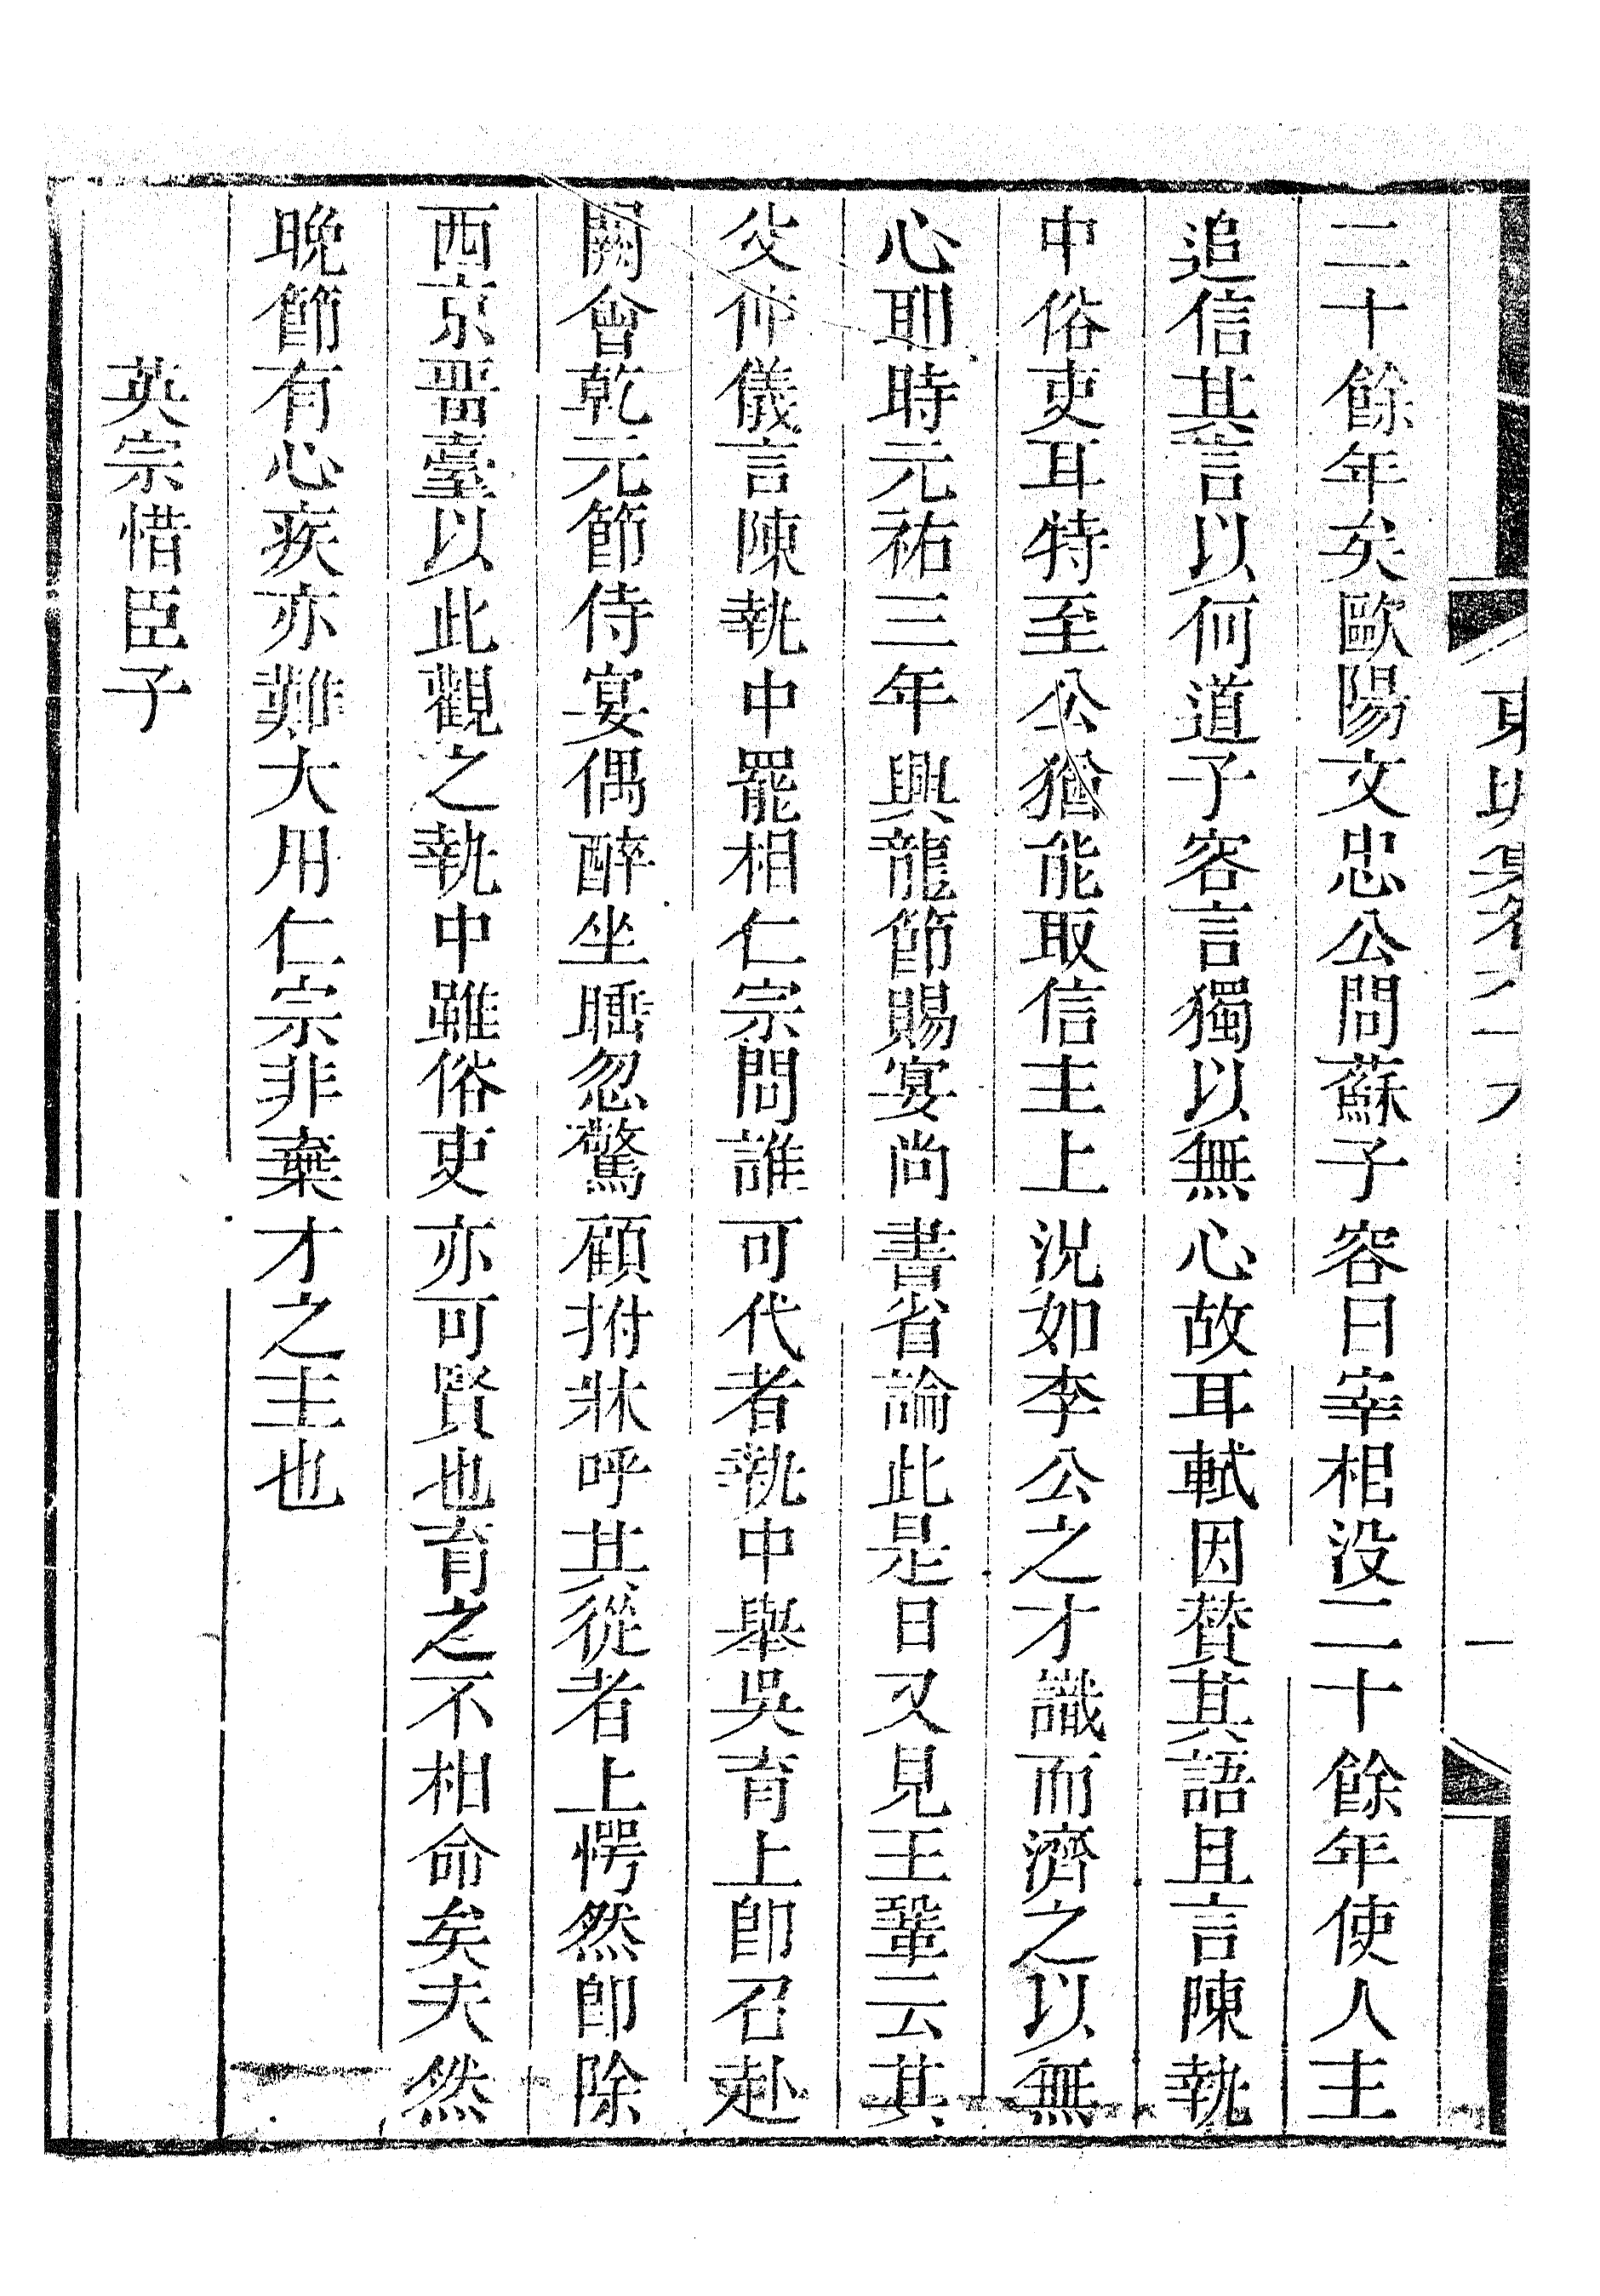 二十餘年矣歐陽文忠公問蘇子容曰宰相没二十餘年使人主
追信其言以何道子容言獨以無心故耳軾因贊其語且言陳執
中俗吏耳特至公猶能取信主上況如李公之才識而濟之以無
心耶時元祐三年興龍節賜宴尚書省論此是日又見王鞏云其
父仲儀言陳執中罷相仁宗問誰可代者執中舉吳育上即召赴
闕會乾元節侍宴偶醉坐睡忽驚顧拊牀呼其從者上愕然即除
西京畱臺以此觀之執中雖俗吏亦可賢也育之不相命矣夫然
晚節有心疾亦難大用仁宗非棄才之主也
英宗惜臣子